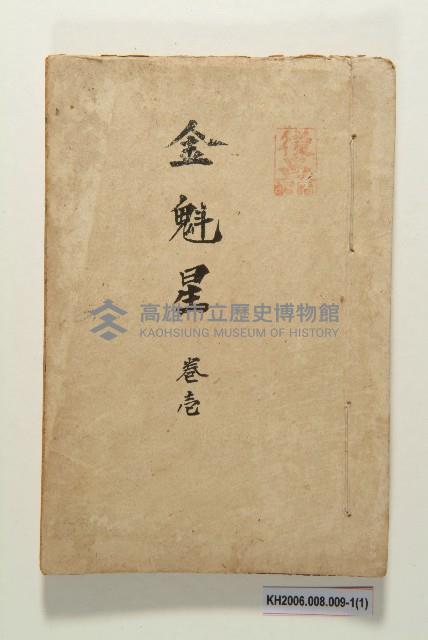 金魁星
卷壱
高雄市立歷史博物館
KAOHSIUNG MUSEUM OF HISTORY
KH2006.008.009-1(1)